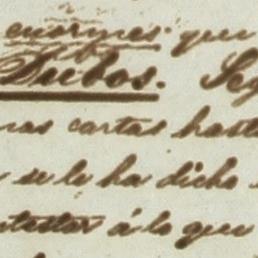 enormes que
Dubos. Seg
nas cartas hasta
se le ha dicho
ntestar á lo que